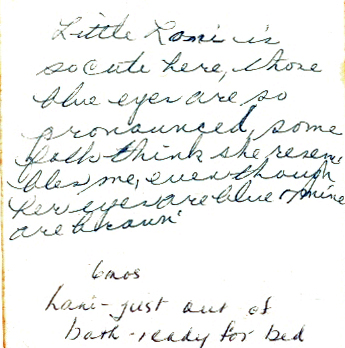 Little Loni is
so cute here, those
blue eyes are so
pronounced, some
folk think she resem,
bles me, even though
her eyes are blue & mine
are brown'
6mos
Loni - just out of
bath - ready for bed